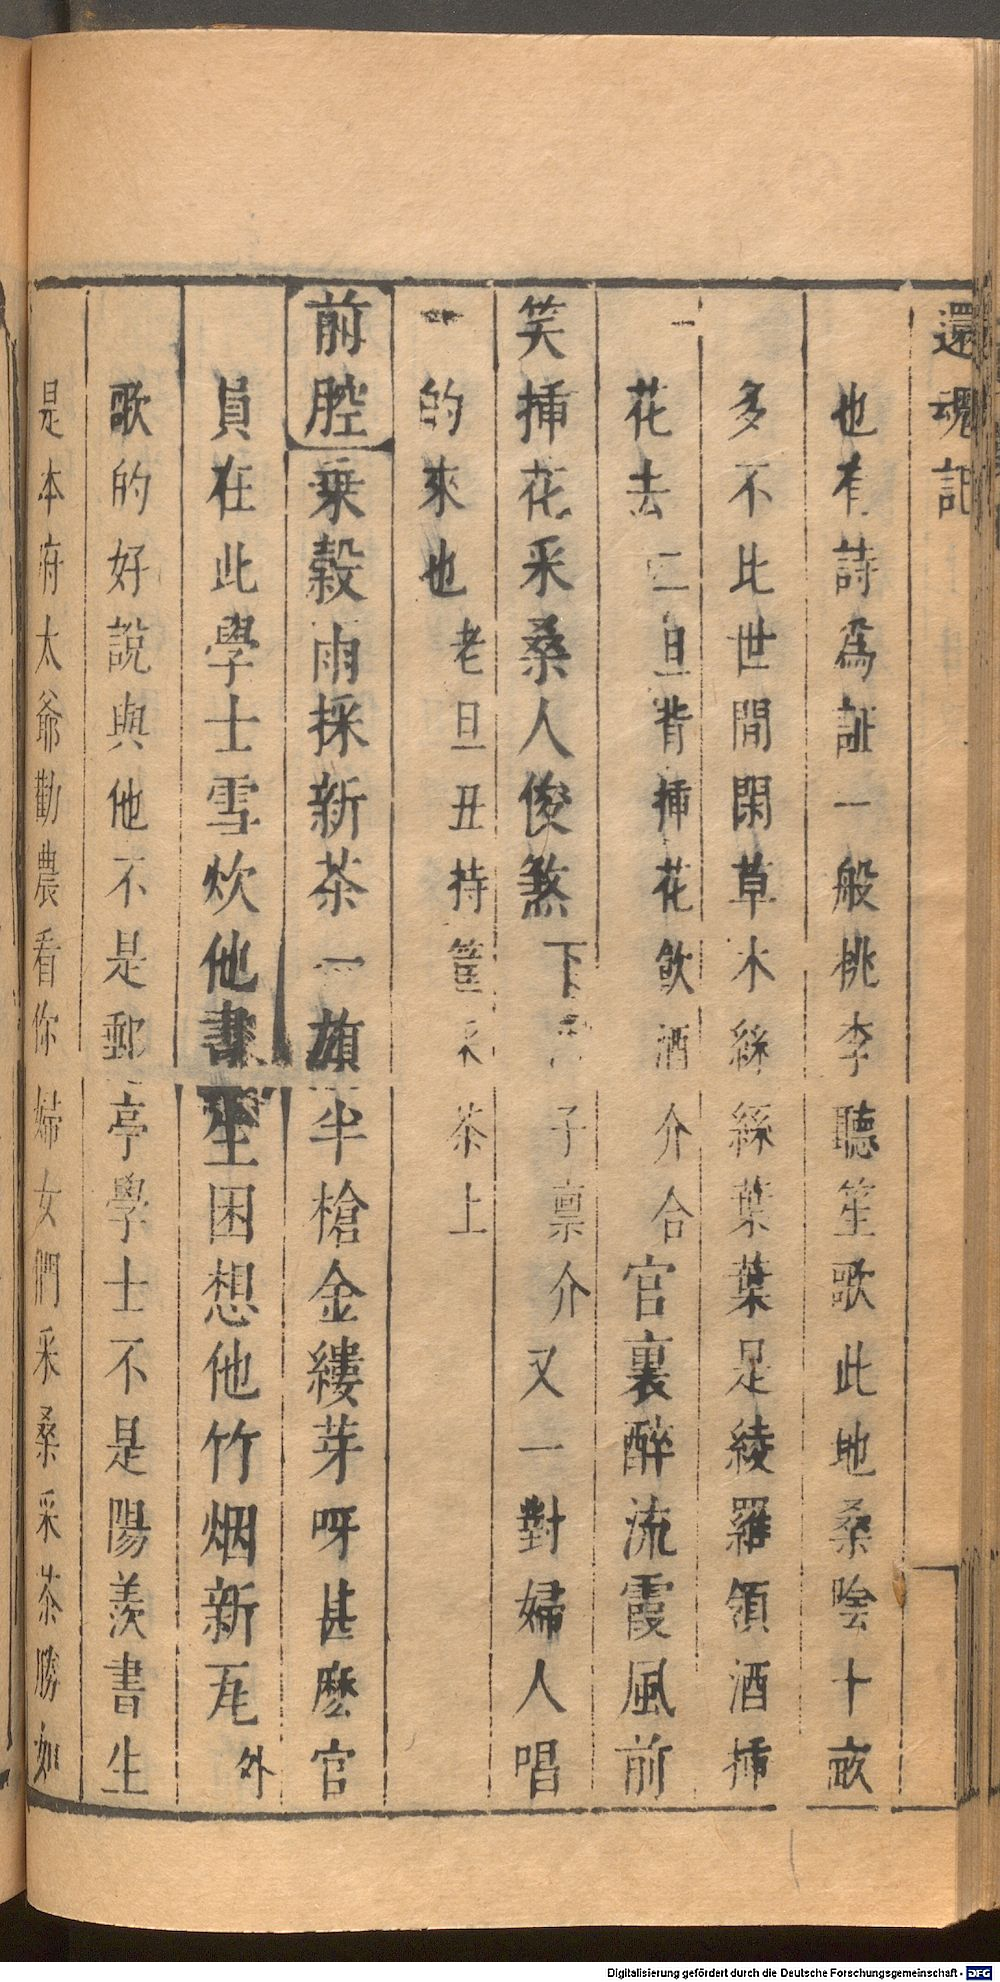 還魂記
也有詩爲証一般桃李聽笙歌此地桑陰十畝
多不比世間閑草木絲絲葉葉是綾羅領酒揷
花去二旦背揷花飲酒介合官裏醉流霞風前
笑揷花采桑人俊煞下子禀介又一對婦人唱
的來也老旦丑持筐采茶上
前腔乗穀雨採新茶一旗半槍金縷芽呀甚麽官
員在此學士雪炊他書生困想他竹烟新瓦外
歌的好說與他不是郵亭學士不是陽羨書生
是本府太爺勸農看你婦女們采桑采茶勝如
Digitalisierung gefördert durch die Deutsche Forschungsgemeinschaft - DFG